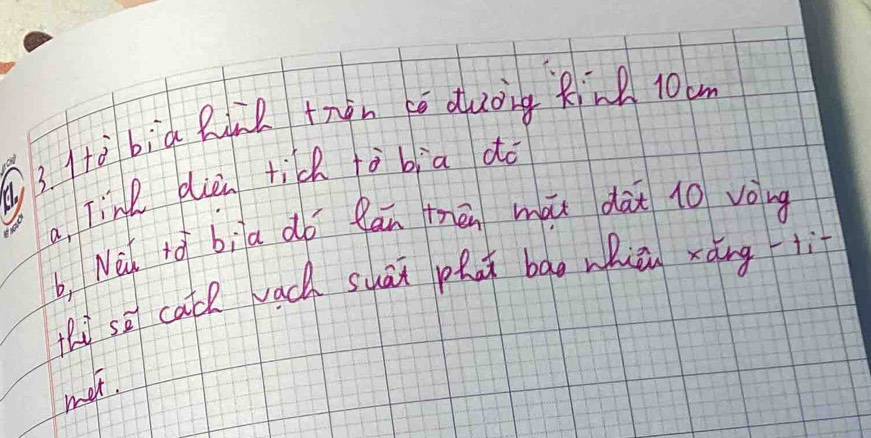 3. 1 tờ bìa hình tròn có đường kính 10 cm
a, Tính diện tích tờ bìa đó
b, Nếu tờ bìa đó lăn trên mặt đất 10 vòng
thì sẽ cách vạch suất phát bao nhiêu xăng-ti-
mét.